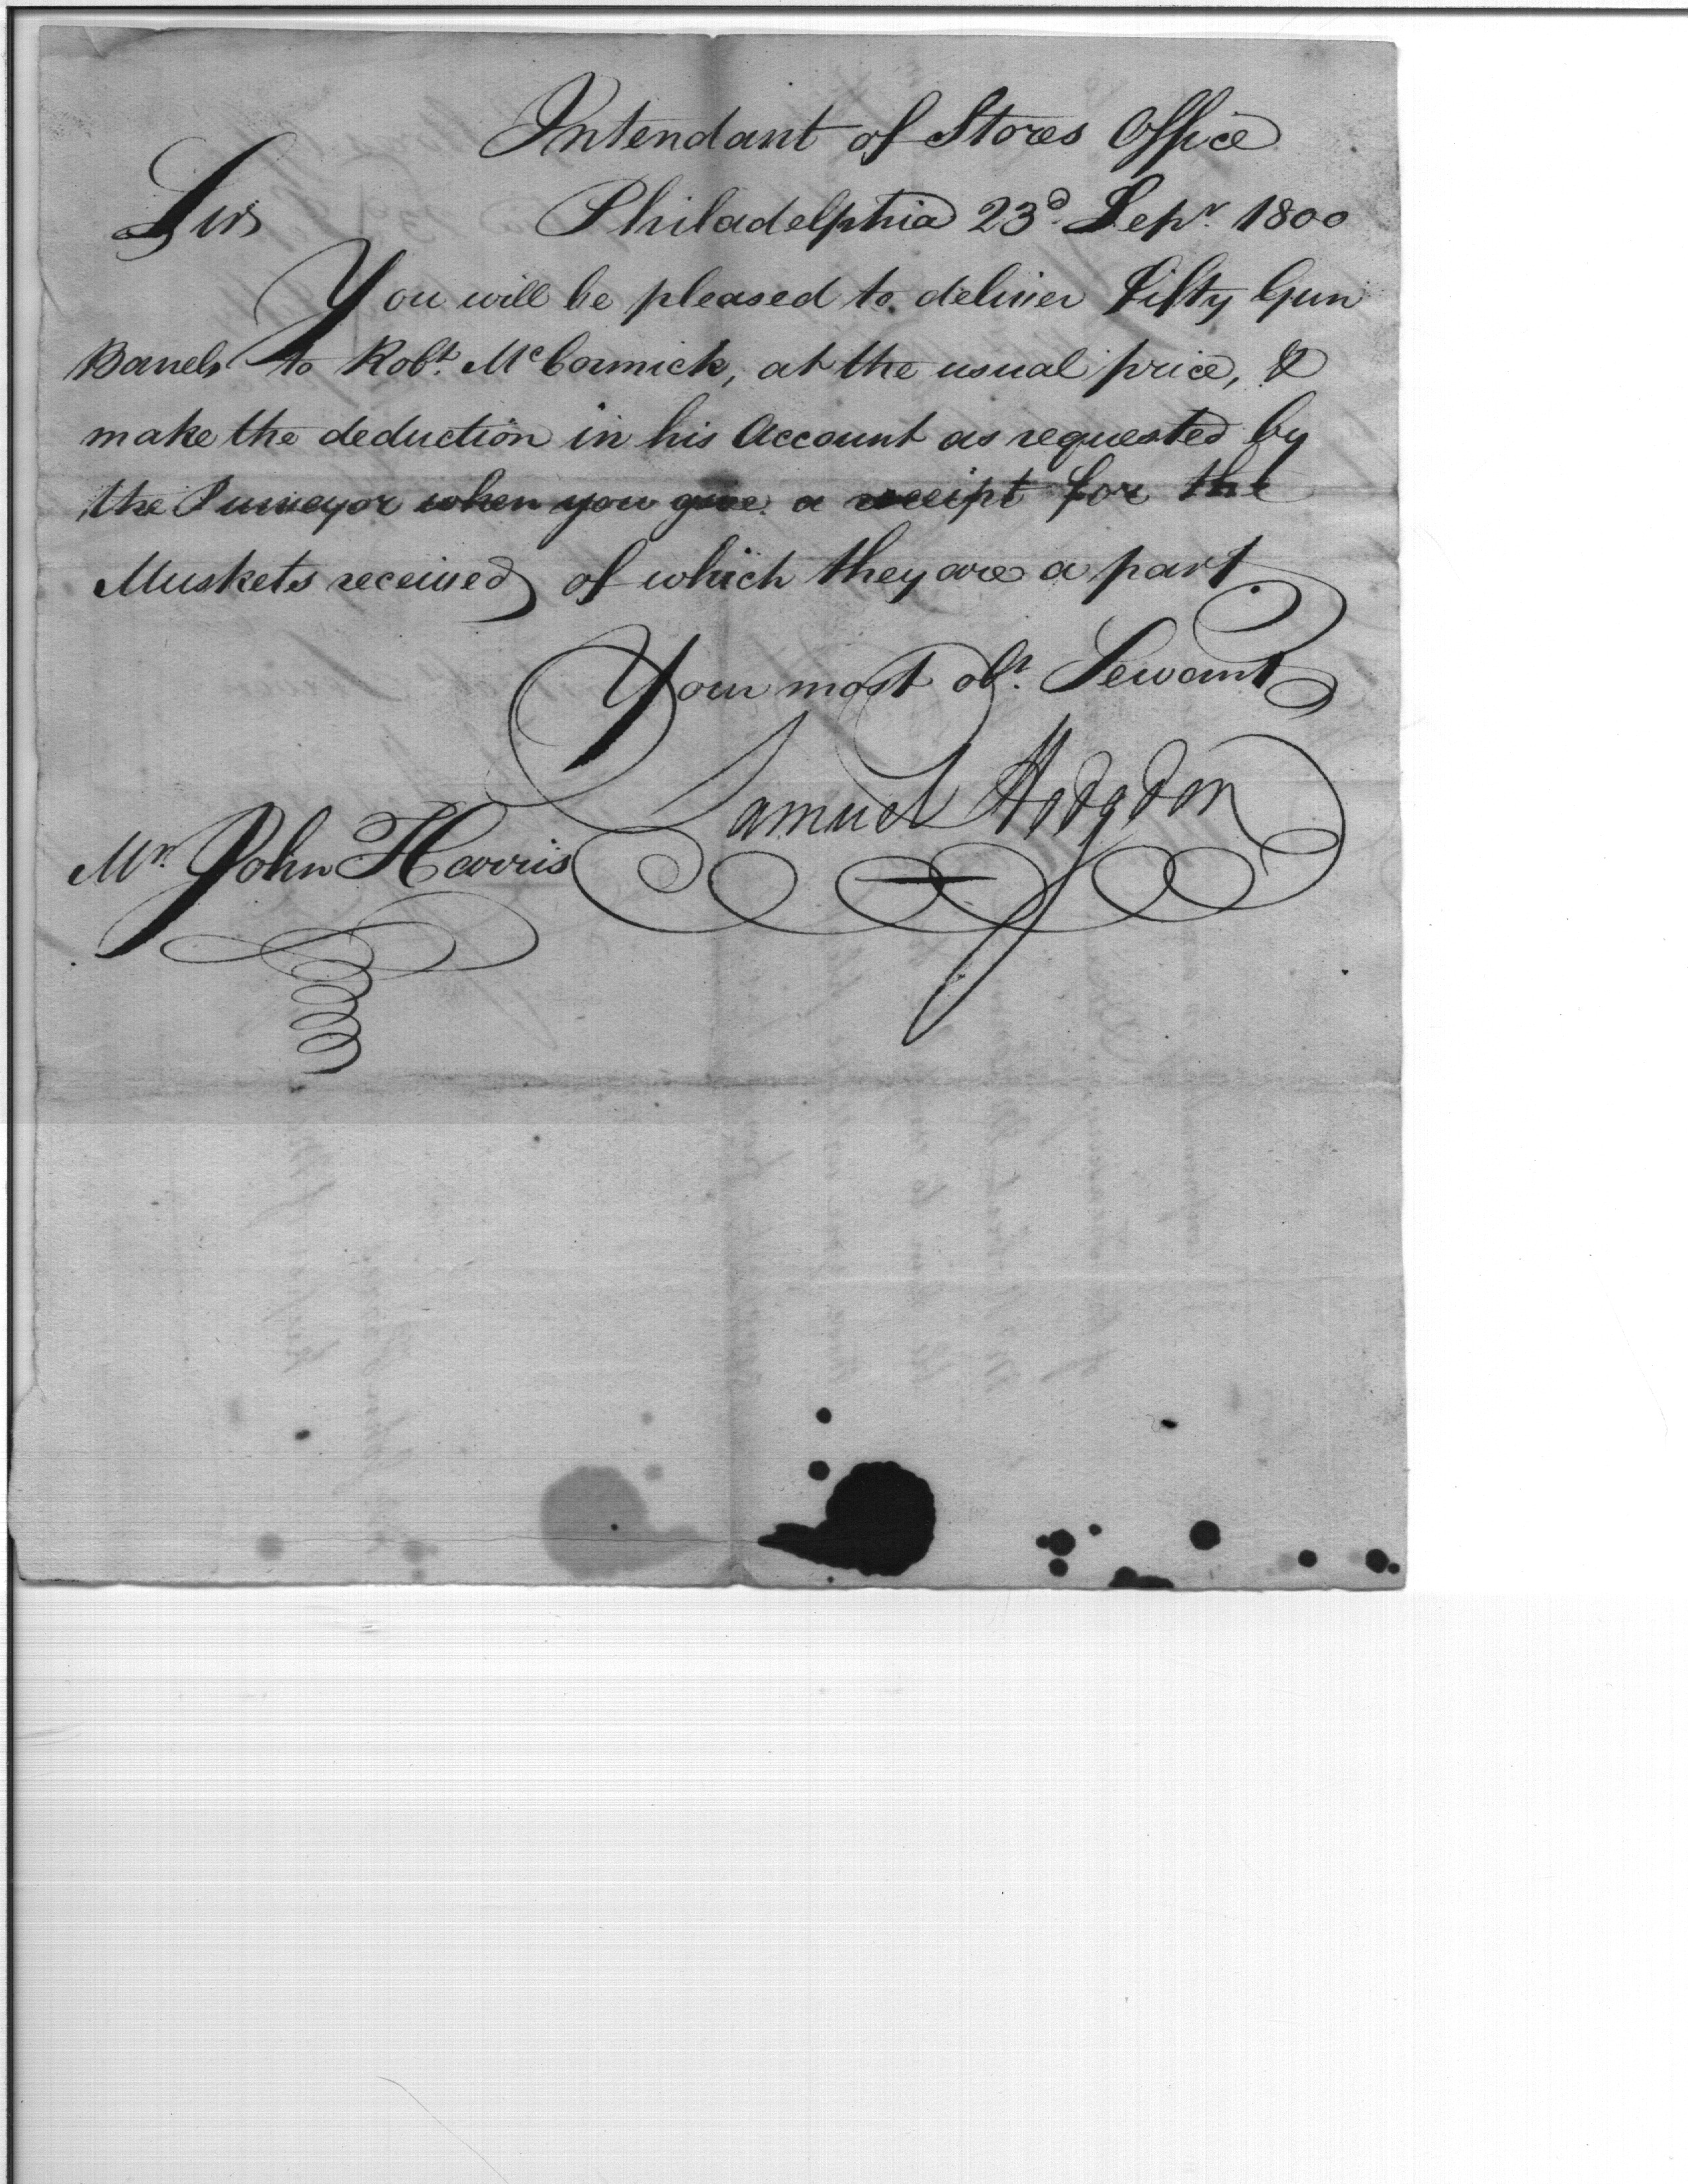 Intendant of Stores Office
Sir Philadelphia 23d. Sepr. 1800
You will be pleased to deliver Fifty Gun
Barrels to Robt. McCormick, at the usual price, &
make the deduction in his Account as requested by
the Purveyor when you give a receipt for the
Muskets received of which they are a part
Your most obt. Servant
Samuel Hodgdon
Mr. John Harris